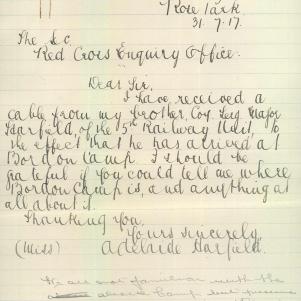 Rose Park
31.7.17.
The Sec.
Red Cross Enquiry Office.
Dear Sir,
I have received a
cable from my brother, Coy. Serg. Major
Harfield, of the 5th Railway Unit, to
the effect that he has arrived at
Bordon Camp. I should be
grateful if you could tell me where
Bordon Camp is, and anything at
all about it.
Thanking You,
Yours sincerely,
(Miss) Adelaide Harfield.
We are not familiar with the
above Camp but presume